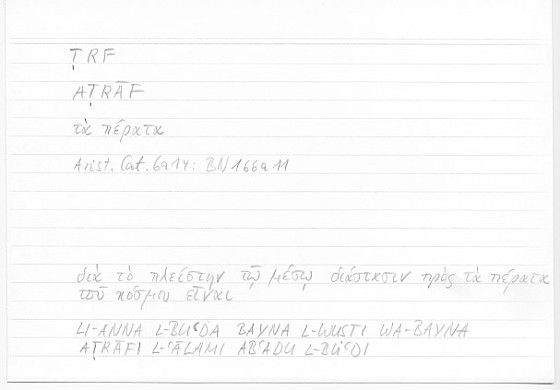 ṬRF
AṬRĀF
τὰ πέρατα
Arist. Cat. 6a14: BN166a11
διὰ τὸ πλείστην τῷ μέσῳ διάστασιν πρὸς τὰ πέρατα
τοῦ κόσμου εἶναι
LI-ANNA L-BUʿDA BAYNA L-WUSṬI WA-BAYNA
AṬRĀFI L-ʿĀLAMI ABʿADU L-BUʿDI